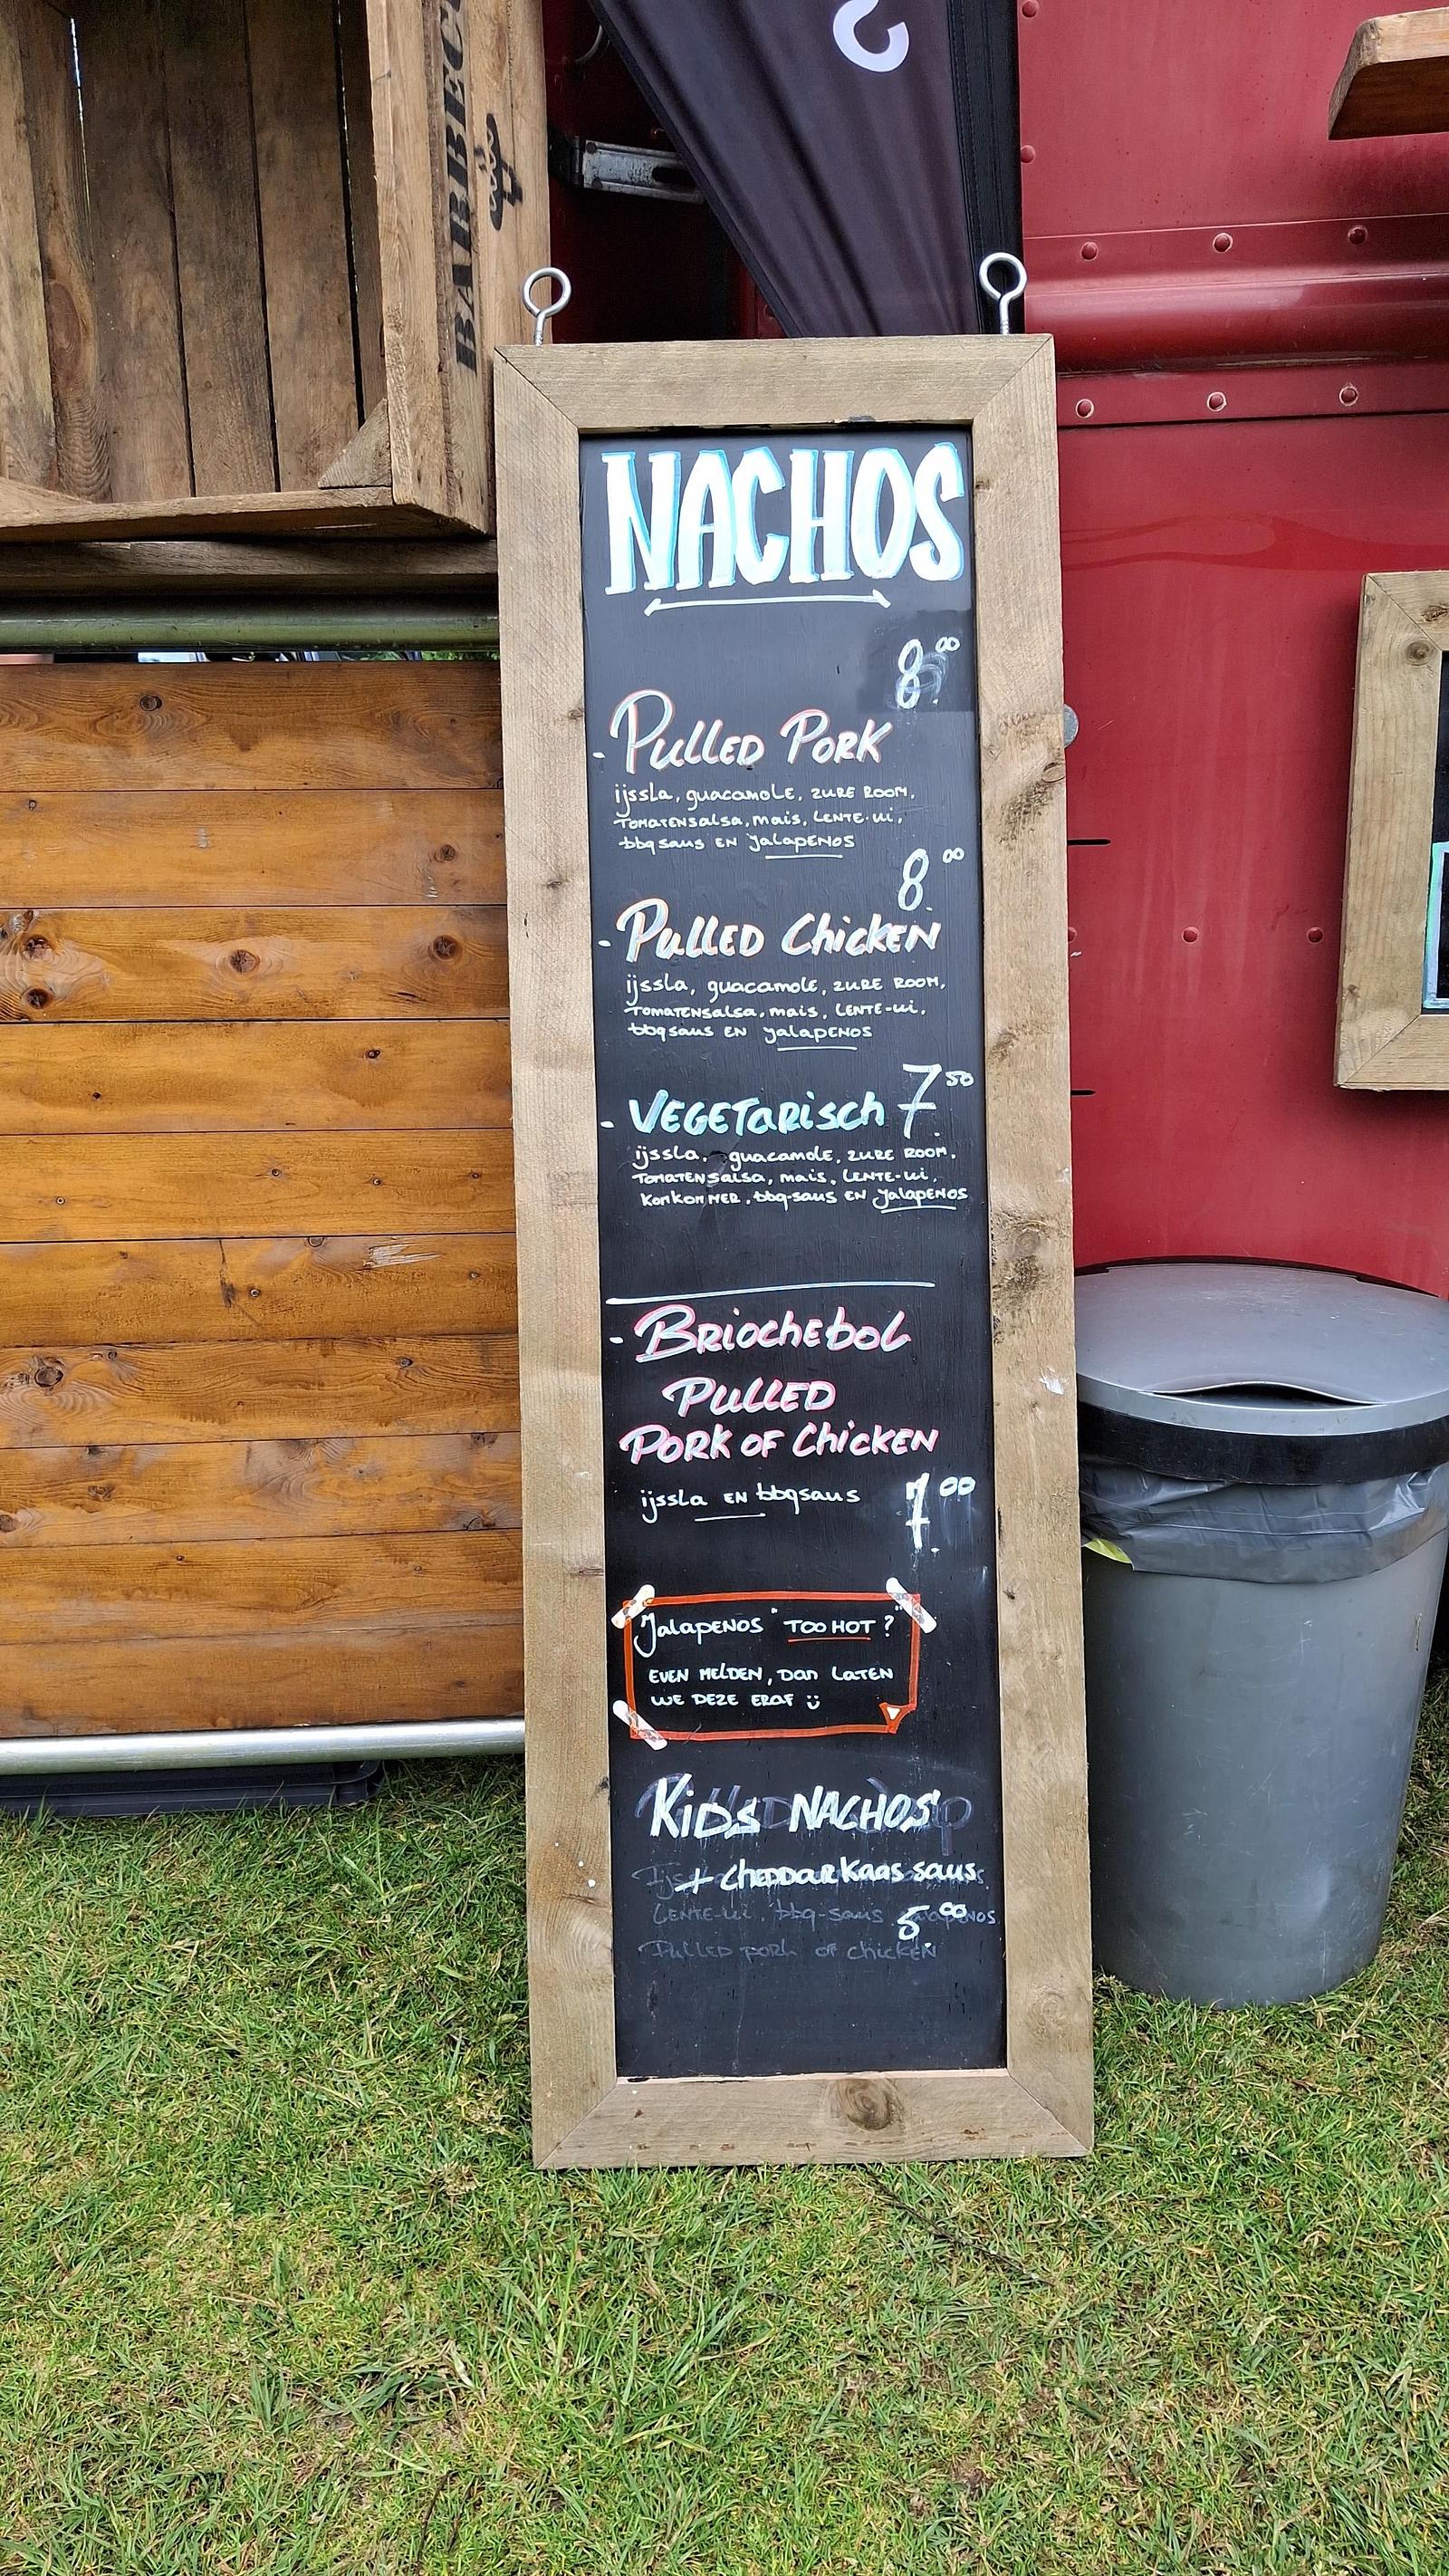 BARBECU
NACHOS
8.00
- Pulled Pork
ijssla, guacamole, zure room,
tomatensalsa, mais, lente-ui,
bbq saus en jalapenos
8.00
- Pulled Chicken
ijssla, guacamole, zure room,
tomatensalsa, mais, lente-ui,
bbq saus en jalapenos
- Vegetarisch 7.50
ijssla, guacamole, zure room,
tomatensalsa, mais, lente-ui,
komkommer, bbq-saus en jalapenos
- Briochebol
Pulled
Pork of Chicken
ijssla en bbqsaus 7.00
Jalapenos "TOO HOT?"
even melden, dan laten
we deze eraf
Kids NACHOS
+ cheddar kaas saus
5.00
lente-ui, bbq-saus jalapenos
Pulled pork of chicken